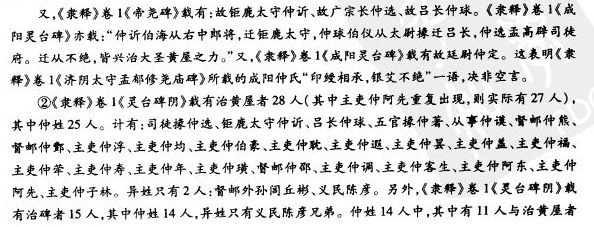 又,《隶释》卷1《帝尧碑》载有:故钜鹿太守仲䜣、故广宗长仲选、故吕长仲球。《隶释》卷1《成
阳灵台碑》亦载:“仲䜣伯海从右中郎将,迁钜鹿太守,仲球伯仪从太尉掾迁吕长,仲选孟高辟司徒
府。迁从不绝,皆兴治大圣黄屋之力。”又,《隶释》卷1《成阳灵台碑》载有故廷尉仲定。这表明《隶
释》卷1《济阴太守孟郁修尧庙碑》所载的成阳仲氏“印绶相承,银艾不绝”一语,决非空言。
②《隶释》卷1《灵台碑阴》载有治黄屋者28人(其中主吏仲阿先重复出现,则实际有27人),
其中仲姓25人。计有:司徒掾仲选、钜鹿太守仲䜣、吕长仲球、五官掾仲著、从事仲谟、督邮仲熊、
督邮仲鄄、主吏仲浮、主吏仲均、主吏仲伯豪、主吏仲耽、主吏仲遐、主吏仲昙、主吏仲盖、主吏仲福、
主吏仲荣、主吏仲寿、主吏仲年、主吏仲璜、督邮仲邵、主吏仲调、主吏仲客生、主吏仲阿东、主吏仲
阿先、主吏仲子林。异姓只有2人:督邮外孙闾丘彬、义民陈彦。另外,《隶释》卷1《灵台碑阴》载
有治碑者15人,其中仲姓14人,异姓只有义民陈彦兄弟。仲姓14人中,其中有11人与治黄屋者